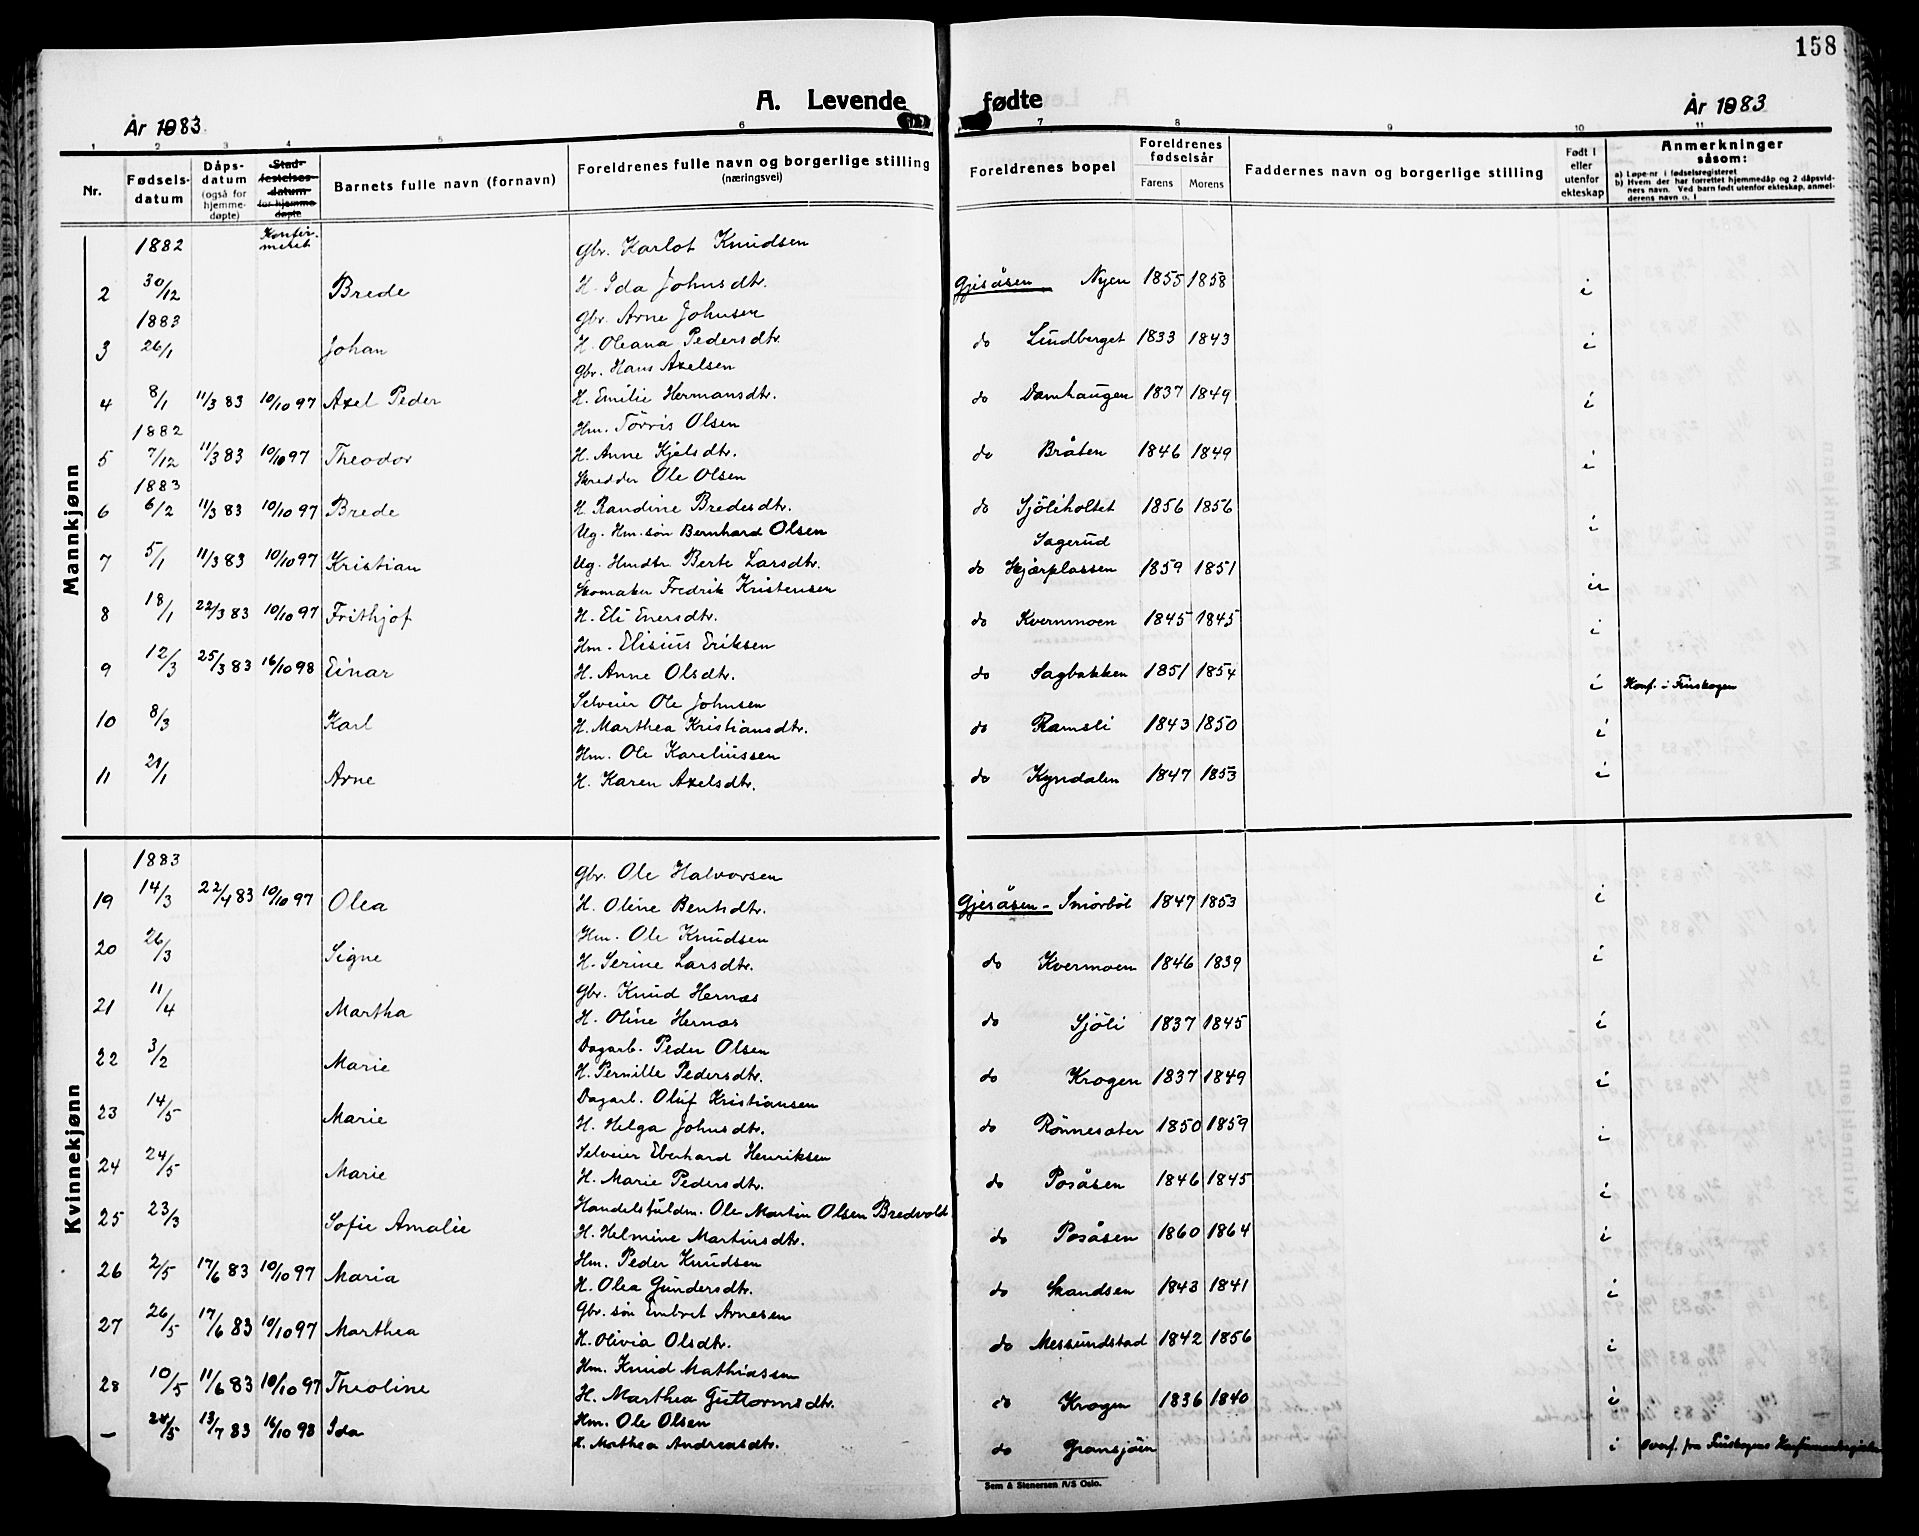 158
A. Levende fødte
År 1883.
År 1883
1 2 3 4 5 6 7 8 9 10 11
Nr.
Fødsels-datum
Dåps-datum (også for hjemme-døpte)
Stad-festelses-datum for hjemme-døpte
Barnets fulle navn (fornavn)
Foreldrenes fulle navn og borgerlige stilling (næringsvei)
Foreldrenes bopel
Foreldrenes fødselsår
Farens Morens
Faddernes navn og borgerlige stilling
Født i eller utenfor ekteskap
Anmerkninger såsom:
a) Løpe-nr i fødselsregisteret
b) Hvem der har forrettet hjemmedåp og 2 dåpsvid-
ners navn. Ved barn født utenfor ekteskap, anmel-
derens navn o. l
Mannkjønn
1882 Konfir-meret Gbr. Karlot Knudsen
2 30/12 Brede H. Ida Johnsdtr. Gjesåsen Nyen 1855 1858 i
1883 Gbr. Arne Johnsen
3 26/1 Johan H. Oleana Pedersdtr. do Lundberget 1833 1843 i
Gbr. Hans Axelsen
4 8/1 11/3 83 10/10 97 Axel Peder H. Emilie Hermansdtr. do Damhaugen 1837 1849 i
1882 Hm. Törris Olsen
5 7/12 11/3 83 10/10 97 Theodor H. Anne Kjelsdtr. do Bråten 1846 1849 i
1883 Skredder Ole Olsen
6 6/2 11/3 83 10/10 97 Brede H. Randine Bredesdtr. do Sjöliholtet 1856 1856 i
Ug. Hm. søn Bernhard Olsen Sagerud
7 5/1 11/3 83 10/10 97 Kristian Ug. Hmdtr. Berte Larsdtr. do Skjærplassen 1859 1851
Skomaker Fredrik Kristensen
8 18/1 22/3 83 10/10 97 Frithjof H. Eli Enersdtr. do Kvernmoen 1845 1845 i
Hm. Elisius Eriksen
9 12/3 25/3 83 16/10 98 Einar H. Anne Olsdtr. do Sagbakken 1851 1854 i Konf. i Finskogen
Selveier Ole Johnsen
10 8/3 Karl H. Marthea Kristiansdtr. do Ramsli 1843 1850 i
Hm. Ole Kareliussen
11 21/1 Arne H. Karen Axelsdtr. do Kyndalen 1847 1853 i
Kvinnekjønn
1883 Gbr. Ole Halvorsen
19 14/3 22/4 83 10/10 97 Olea H. Oline Bentsdtr. Gjesåsen - Smörböl 1847 1853 i
Hm. Ole Knudsen
20 26/3 Signe H. Serine Larsdtr. do Kvermoen 1846 1839 i
Gbr. Knud Hernæs
21 11/4 Martha H. Oline Hernæs do Sjöli 1837 1845 i
Dagarb. Peder Olsen
22 3/2 Marie H. Pernille Pedersdtr. do Krogen 1837 1849 i
Dagarb. Oluf Kristiansen
23 14/5 Marie H. Helga Johnsdtr. do Rönnesæter 1850 1859 i
Selveier Eberhard Henriksen
24 24/5 Marie H. Marie Pedersdtr. do Posåsen 1846 1845 i
Handelsfuldm. Ole Martin Olsen Bredvold
25 23/3 Sofie Amalie H. Helmine Martinsdtr. do Posåsen 1860 1864 i
Hm. Peder Knudsen
26 2/5 17/6 83 10/10 97 Maria H. Olea Gundersdtr. do Skandsen 1843 1841 i
Gbr. søn Embret Arnesen
27 26/5 17/6 83 10/10 97 Marthea H. Olivia Olsdtr. do Messundstad 1842 1856 i
Hm. Knud Mathiassen
28 10/5 11/6 83 10/10 97 Theoline H. Marthea Guttormsdtr. do Krogen 1836 1840 i
Hm. Ole Olsen
— 24/5 13/7 83 16/10 98 Ida H. Mathea Andreasdtr. do Gransjöen i Overf. fra Finskogens
Sem & Stenersen A/S Oslo.